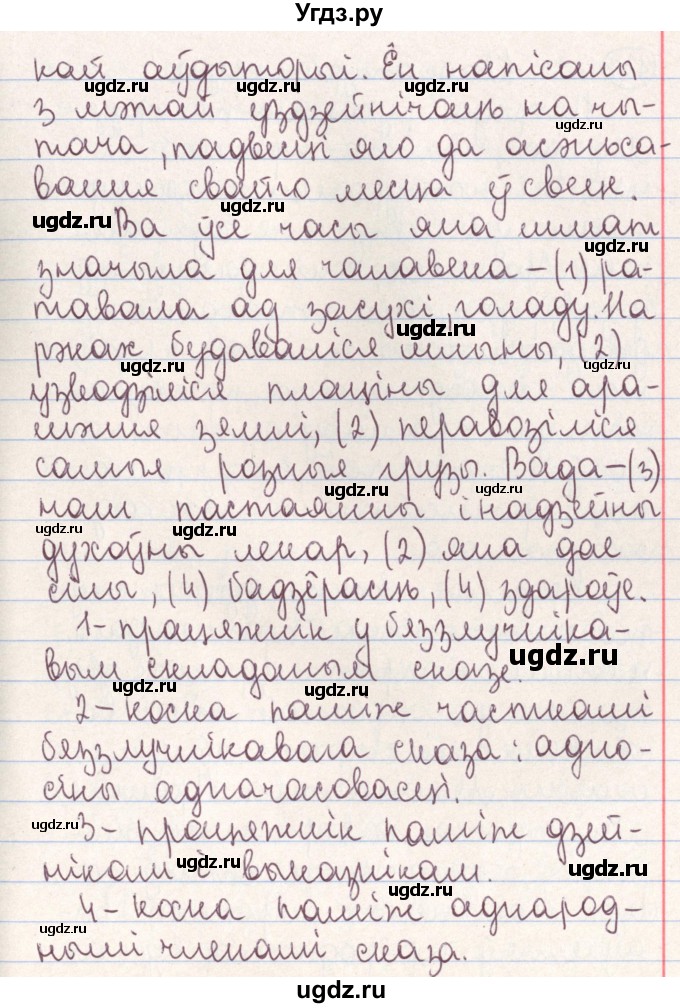 Угдз.ру
кай аўдыторыі. Ён напісаны
з мэтай уздзейнічаць на чы-
тача, падвесці яго да асэнса-
вання свайго месца ў свеце.
Ва ўсе часы яна шмат
значыла для чалавека – (1) ра-
тавала ад засухі, голаду. На
рэках будаваліся млыны, (2)
узводзіліся плаціны для ара-
шэння зямлі, (2) перавозіліся
самыя розныя грузы. Вада – (3)
наш пастаянны і надзейны
духоўны лекар, (2) яна дае
сілы, (4) бадзёрасць, (4) здароўе.
1 – працяжнік у бяззлучніка-
вым складаным сказе.
2 – коска паміж часткамі
бяззлучнікавага сказа: адно-
сіны адначасовасці.
3 – працяжнік паміж дзей-
нікам і выказнікам.
4 – коска паміж аднарод-
нымі членамі сказа.
ugdz.ru